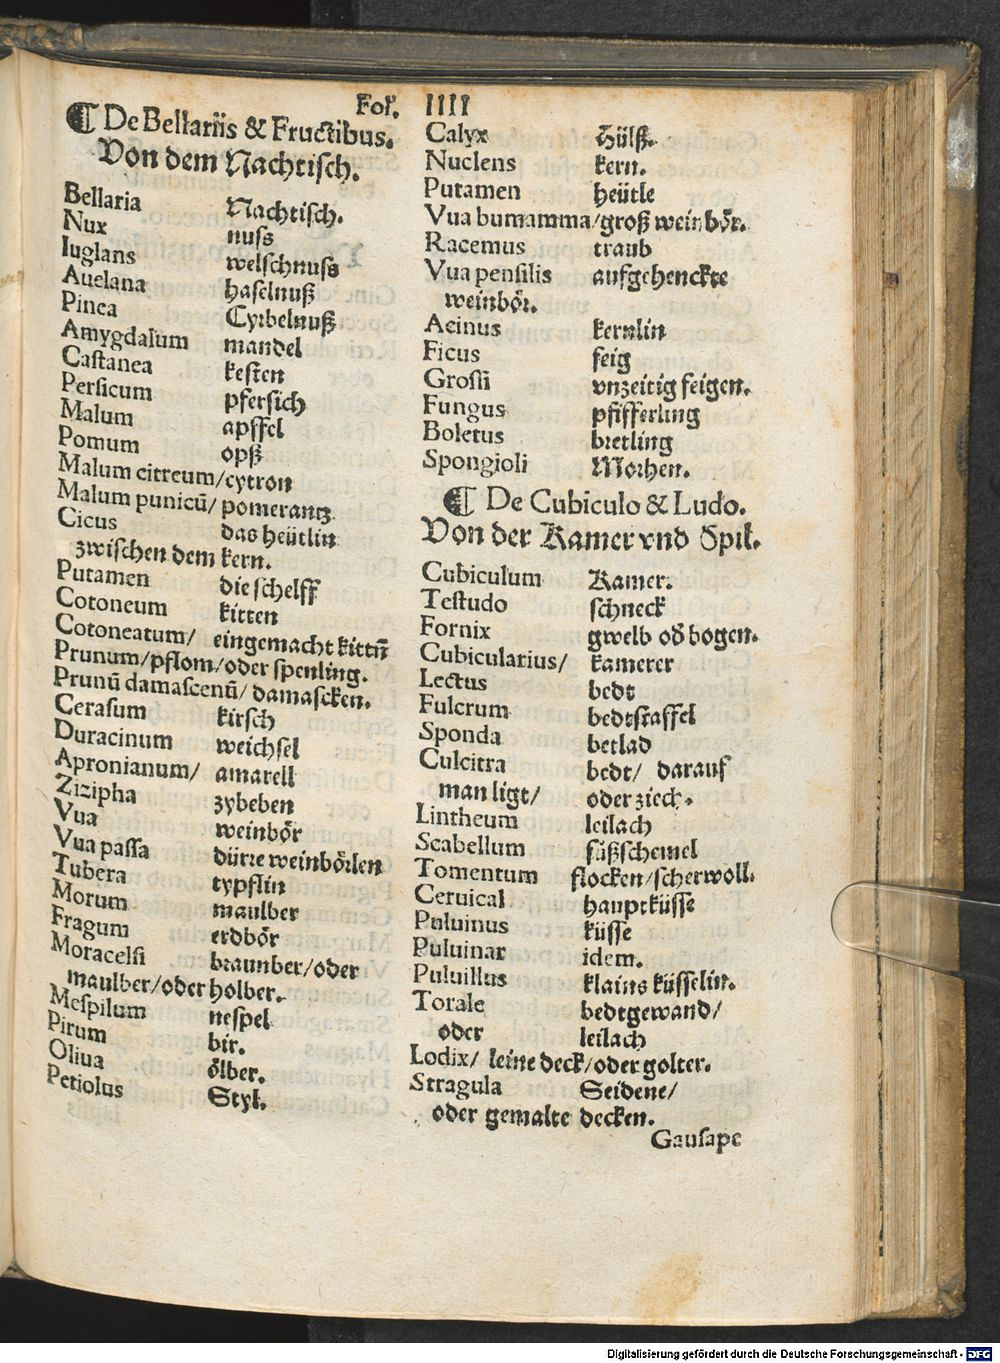 Fol. IIII
¶ De Bellariis & Fructibus.
Von dem Nachtisch.
Bellaria Nachtisch.
Nux nuss
Iuglans welschnuss
Auelana haselnuß
Pinea Cyrbelnuß
Amygdalum mandel
Castanea kesten
Persicum pfersich
Malum apffel
Pomum opß
Malum citreum/cytron
Malum punicū/ pomerantz
Cicus das heütlin
zwischen dem kern.
Putamen die schelff
Cotoneum kitten
Cotoneatum/ eingemacht kittē
Prunum/pflom/oder spenling.
Prunū damascenū/ damascken.
Cerasum kirsch
Duracinum weichsel
Apronianum/ amarell
Zizipha zybeben
Vua weinbör
Vua passa dürre weinbörlen
Tubera typflin
Morum maulber
Fragum erdbör
Moracelsi braunber/oder
maulber/oder holber.
Mespilum nespel
Pirum bir.
Oliua ölber.
Petiolus Styl.
Calyx Hülß.
Nuclens kern.
Putamen heütle
Vua bumamma/groß weinbör.
Racemus traub
Vua pensilis aufgehenckte
weinbör.
Acinus kernlin
Ficus feig
Grossi vnzeitig feigen.
Fungus pfifferling
Boletus bretling
Spongioli Morhen.
¶ De Cubiculo & Ludo.
Von der Kamer vnd Spil.
Cubiculum Kamer.
Testudo schneck
Fornix gwelb od bogen.
Cubicularius/ kamerer
Lectus bedt
Fulcrum bedtstaffel
Sponda betlad
Culcitra bedt/ darauf
man ligt/ oder ziech.
Lintheum leilach
Scabellum fůßschemel
Tomentum flocken/scherwoll.
Ceruical hauptküsse
Puluinus küsse
Puluinar idem.
Puluillus klains küsselin.
Torale bedtgewand/
oder leilach
Lodix/ leine deck/oder golter.
Stragula Seidene/
oder gemalte decken.
Gausape
Digitalisierung gefördert durch die Deutsche Forschungsgemeinschaft - DFG